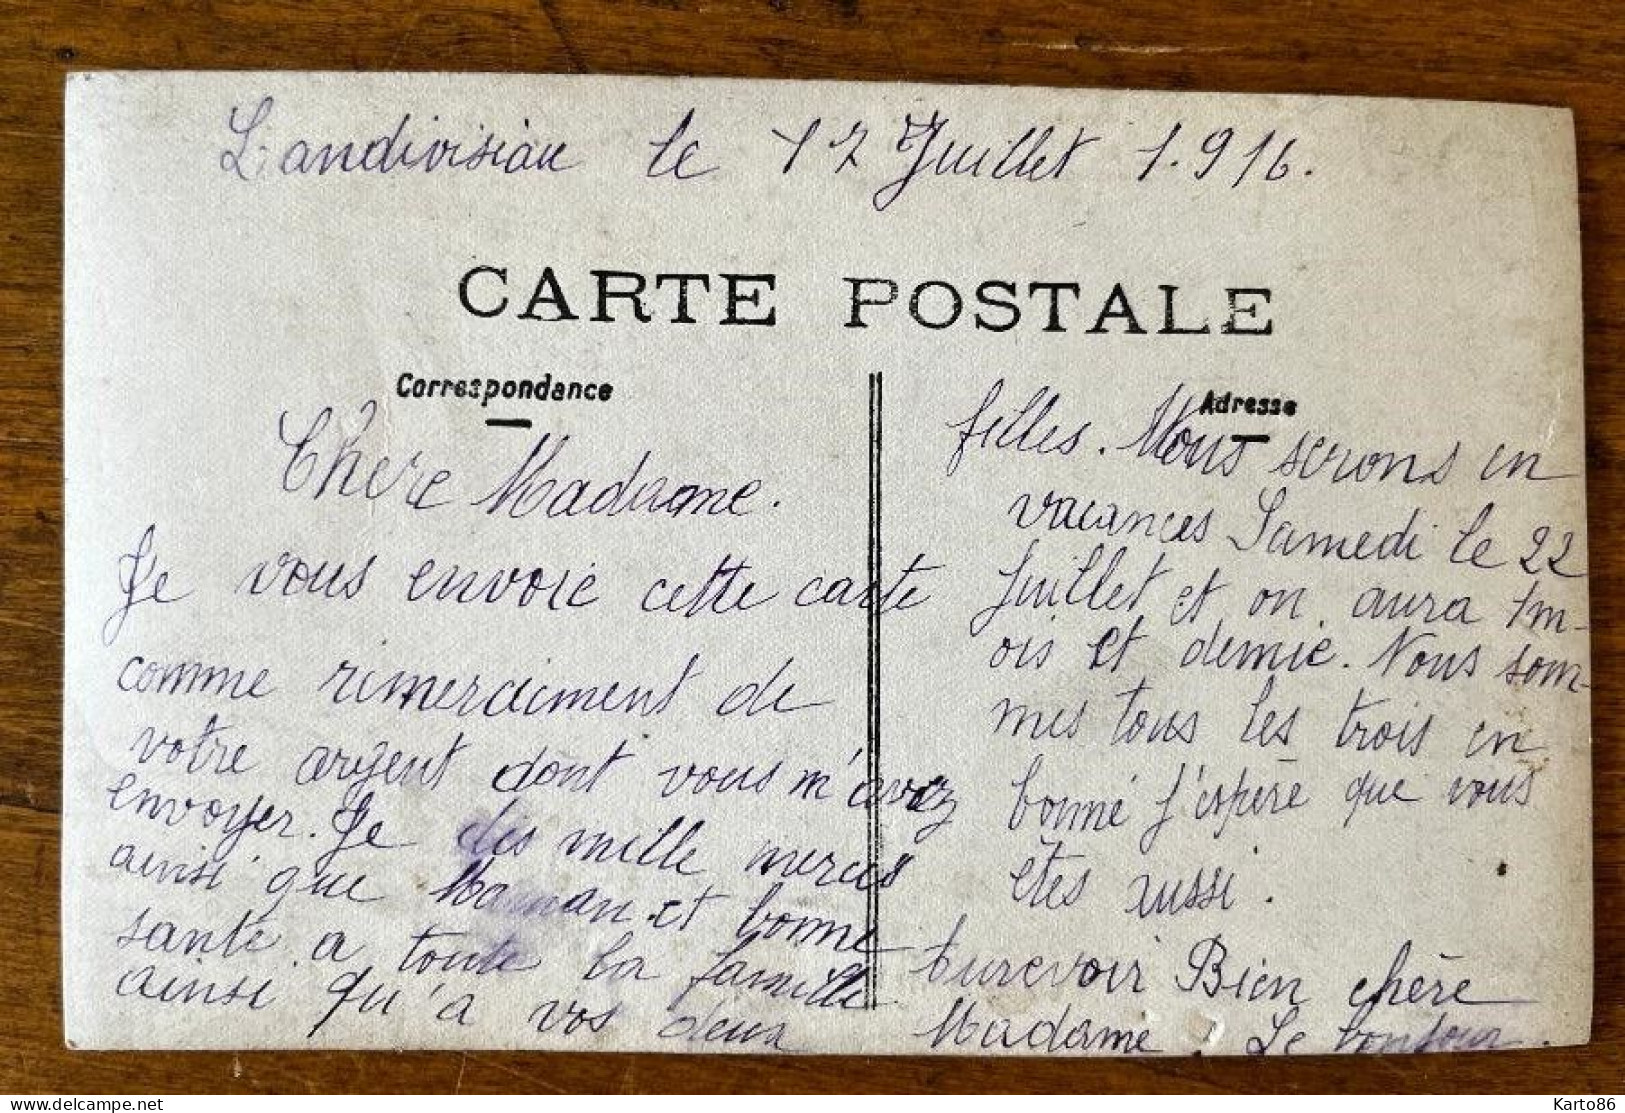 Landivisiau le 17 Juillet 1.916.
CARTE POSTALE
Correspondance
Chère Madame.
Je vous envoie cette carte
comme rimerciment de
votre argent dont vous m'avez
envoyer. Je dis mille mercis
ainsi que Maman et bonne
sante a toute la famille
ainsi qu'a vos deux
Adresse
filles. Nous serons en
vacances Samedi le 22
Juillet et on aura 1m-
ois et demie. Nous som-
mes tous les trois en
bonne j'espère que vous
êtes aussi.
aurevoir Bien chère
Madame. Le bonjour.
Karto86